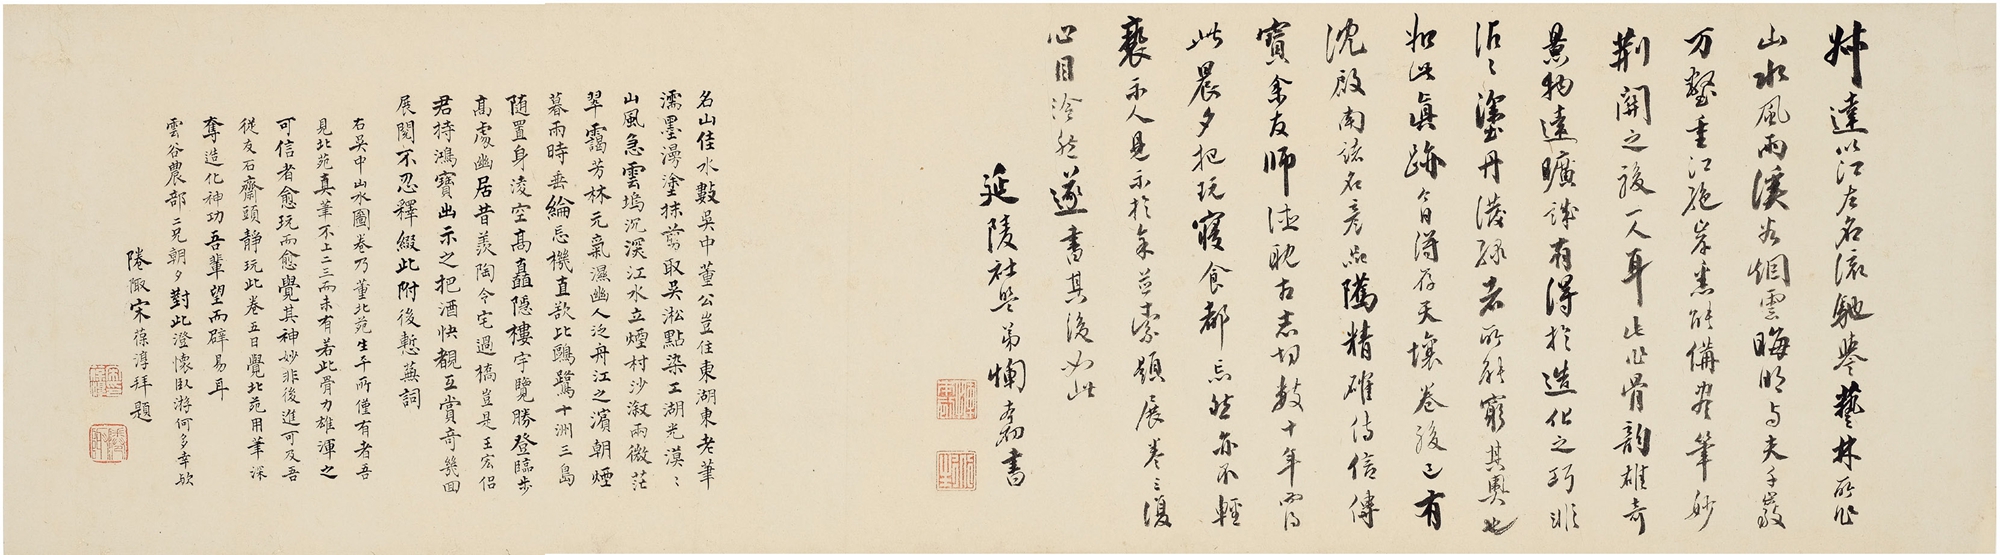 卅達以江左名流馳譽藝林所作
山水風雨溪谷烟雲晦明与夫千巖
万壑重江絶岸悉能備举筆妙
荆關之後一人耳此作骨韵雄奇
景物遠曠誠有得於造化之巧非
沾沾塗丹潑緑者所能窮其奥也
如此真跡今日得存天壤卷後已有
沈啟南諸名彦品隲精確信傳
寶余友師法耽古志切数十年
此晨夕把玩寢食都忘然亦不輕
褻示人見示於余并索題展卷之復
心目冷然遂書其後如此
延陵社學弟爛奇書
名山佳水數吳中董公豈住東湖東老筆
濡墨漫塗抹剪取吳淞點染工湖光漠漠
山風急雲塢沉溟江水立煙村沙溆兩微茫
翠靄芳林元氣濕幽人泛舟江之濱朝煙
暮雨時垂綸忘機直欲比鷗鷺十洲三島
随置身淩空高矗隱樓宇覽勝登臨步
高處幽居昔羨陶令宅過橋豈是王宏侶
君持鴻寶出示之把酒快覩互賞奇幾回
展閲不忍釋綴此附後慙蕪詞
右吳中山水圖卷乃董北苑生平所僅有者吾
見北苑真筆不上二三而未有若此骨力雄渾之
可信者愈玩而愈覺其神妙非後進可及吾
従友石齋頭静玩此卷五日覺北苑用筆深
奪造化神功吾輩望而辟易耳
雲谷農部二兄朝夕對此澄懷臥游何多幸歟
陭陬宋葆淳拜題